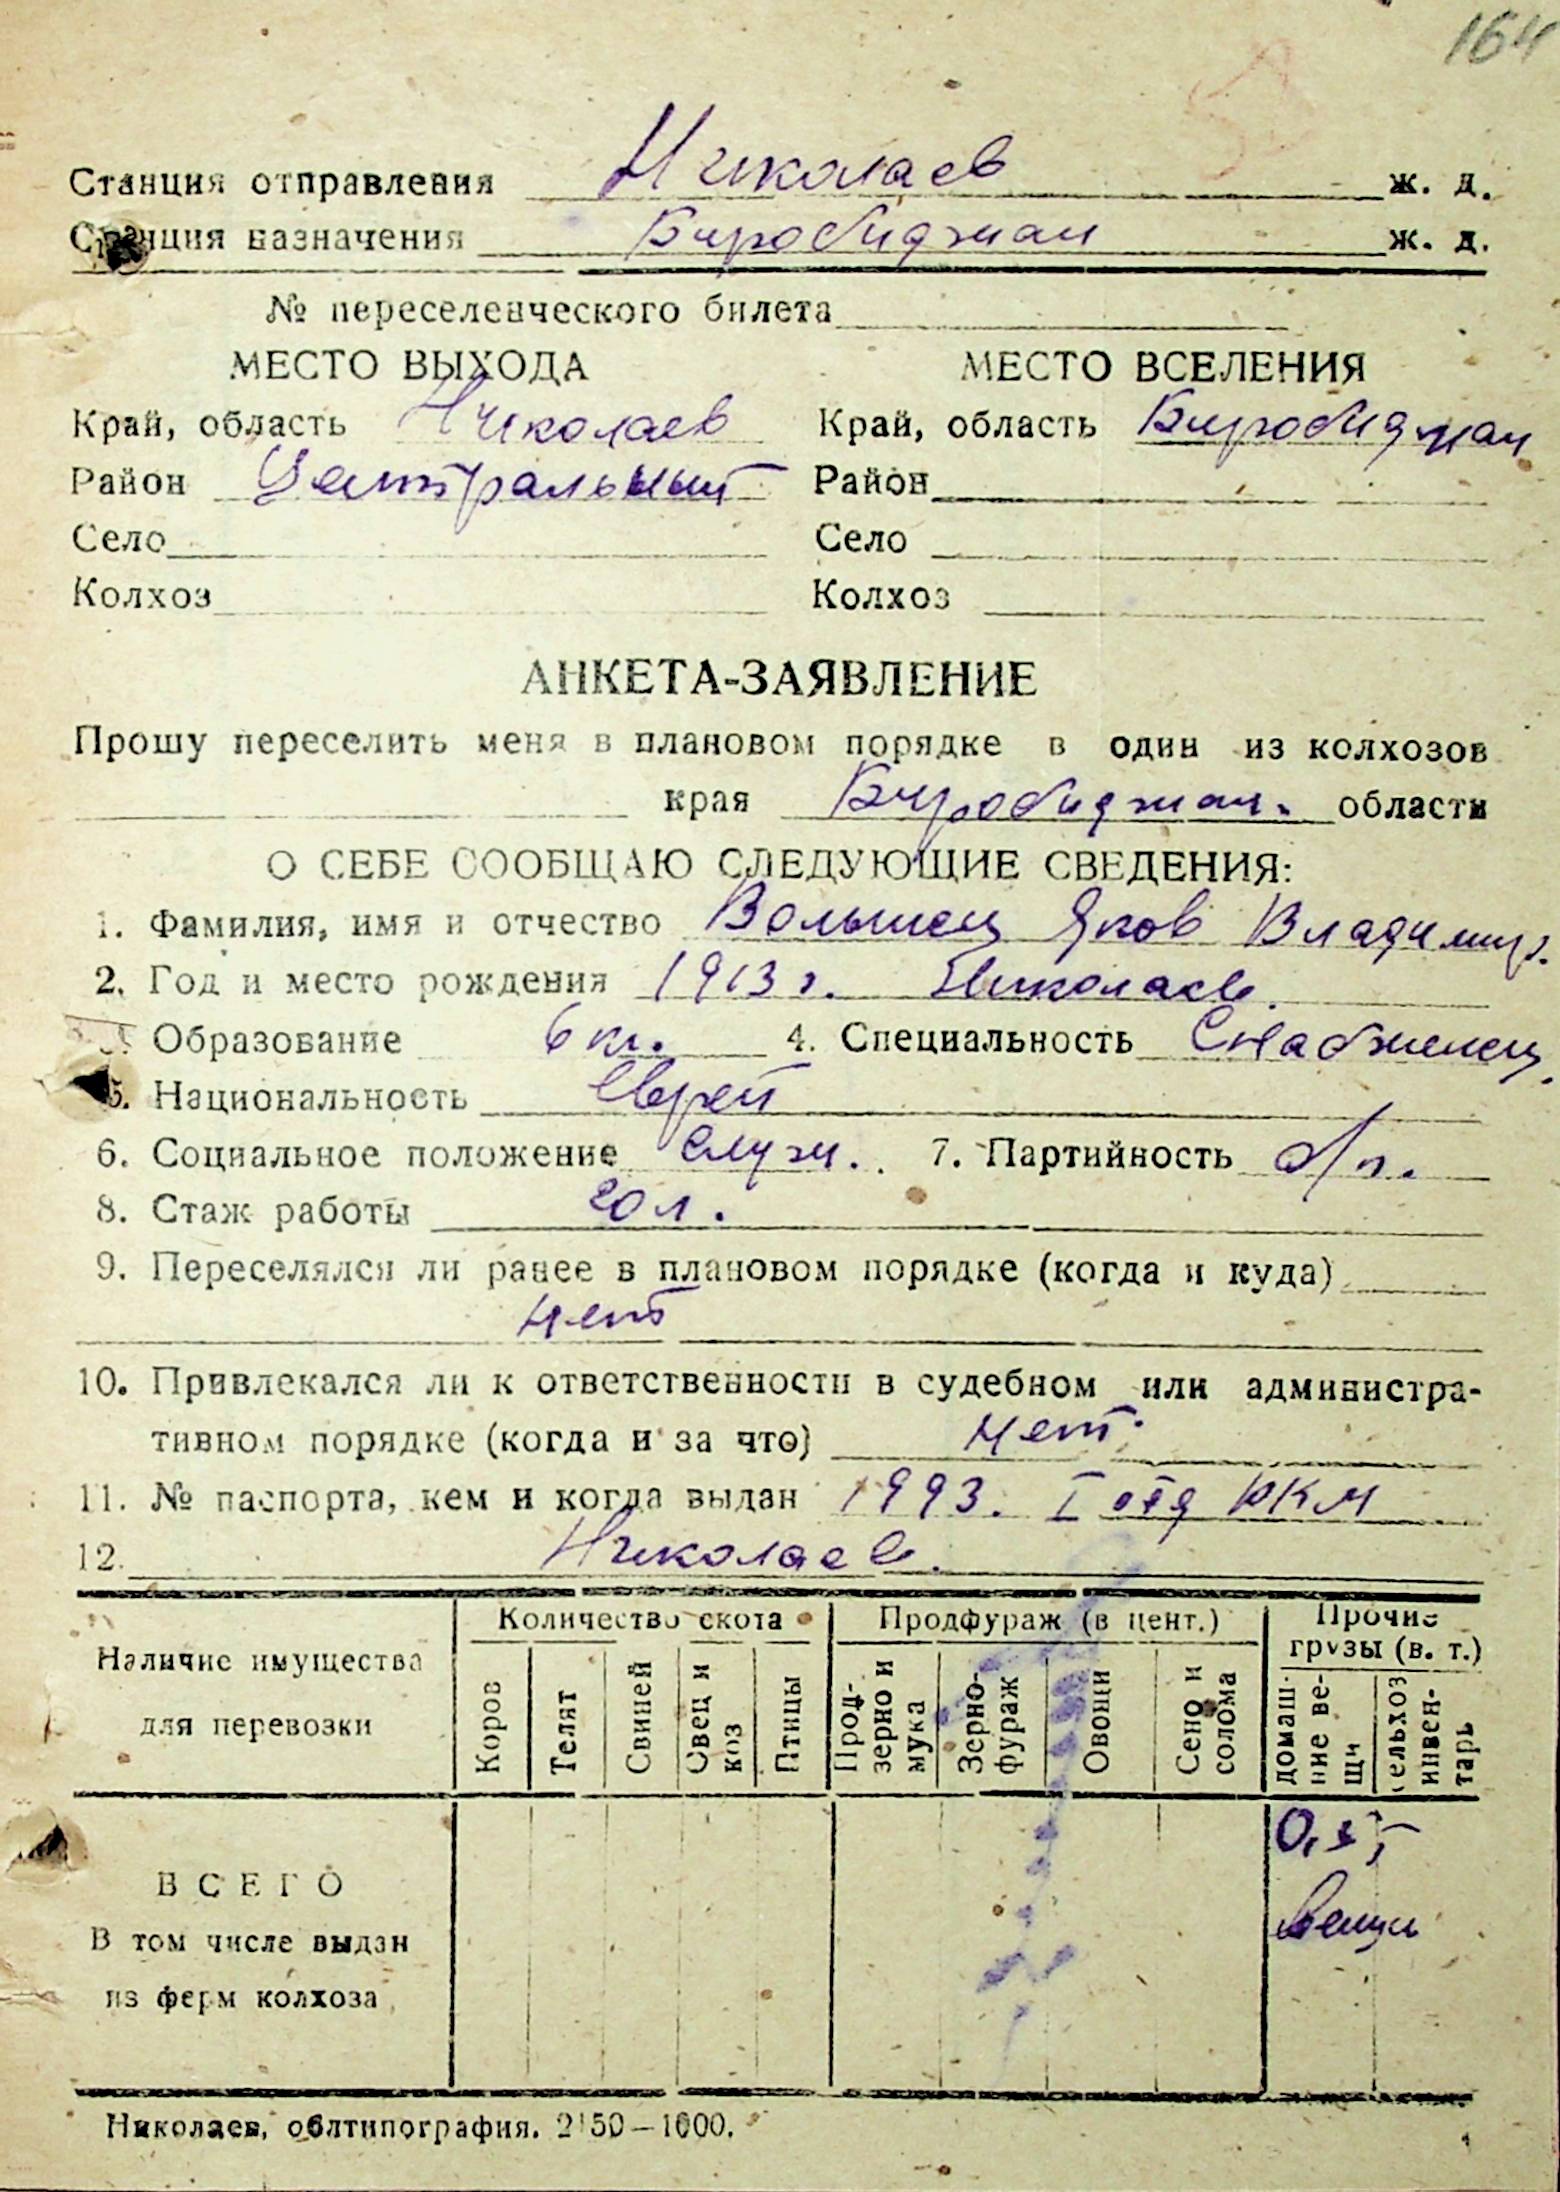 164
Станция отправления Николаев ж. д.
Станция назначения Биробиджан ж. д.
№ переселенческого билета
МЕСТО ВЫХОДА МЕСТО ВСЕЛЕНИЯ
Край, область Николаев Край, область Биробиджан
Район Центральный Район
Село Село
Колхоз Колхоз
АНКЕТА-ЗАЯВЛЕНИЕ
Прошу переселить меня в плановом порядке в один из колхозов
края Биробиджан. области
О СЕБЕ СООБЩАЮ СЛЕДУЮЩИЕ СВЕДЕНИЯ:
1. Фамилия, имя и отчество Волынец Яков Владимир.
2. Год и место рождения 1913 г. Николаев.
Образование 6 кл. 4. Специальность Снабженец.
5. Национальность Еврей
6. Социальное положение служ. 7. Партийность б/п.
8. Стаж работы 20 л.
9. Переселялся ли ранее в плановом порядке (когда и куда)
нет
10. Привлекался ли к ответственности в судебном или администра-
тивном порядке (когда и за что) нет.
11. № паспорта, кем и когда выдан 1993. I отд РКМ
12. Николаев.
Наличие имущества для перевозки
Количество скота Продфураж (в цент.) Прочие грузы (в. т.)
Коров Телят Свиней Овец и коз Птицы Прод-зерно и мука Зерно-фураж Овощи Сено и солома домаш-ние ве-щи сельхоз инвен-тарь
ВСЕГО
вещи
В том числе выдан
из ферм колхоза
Николаев, облтипография. 2150—1000.